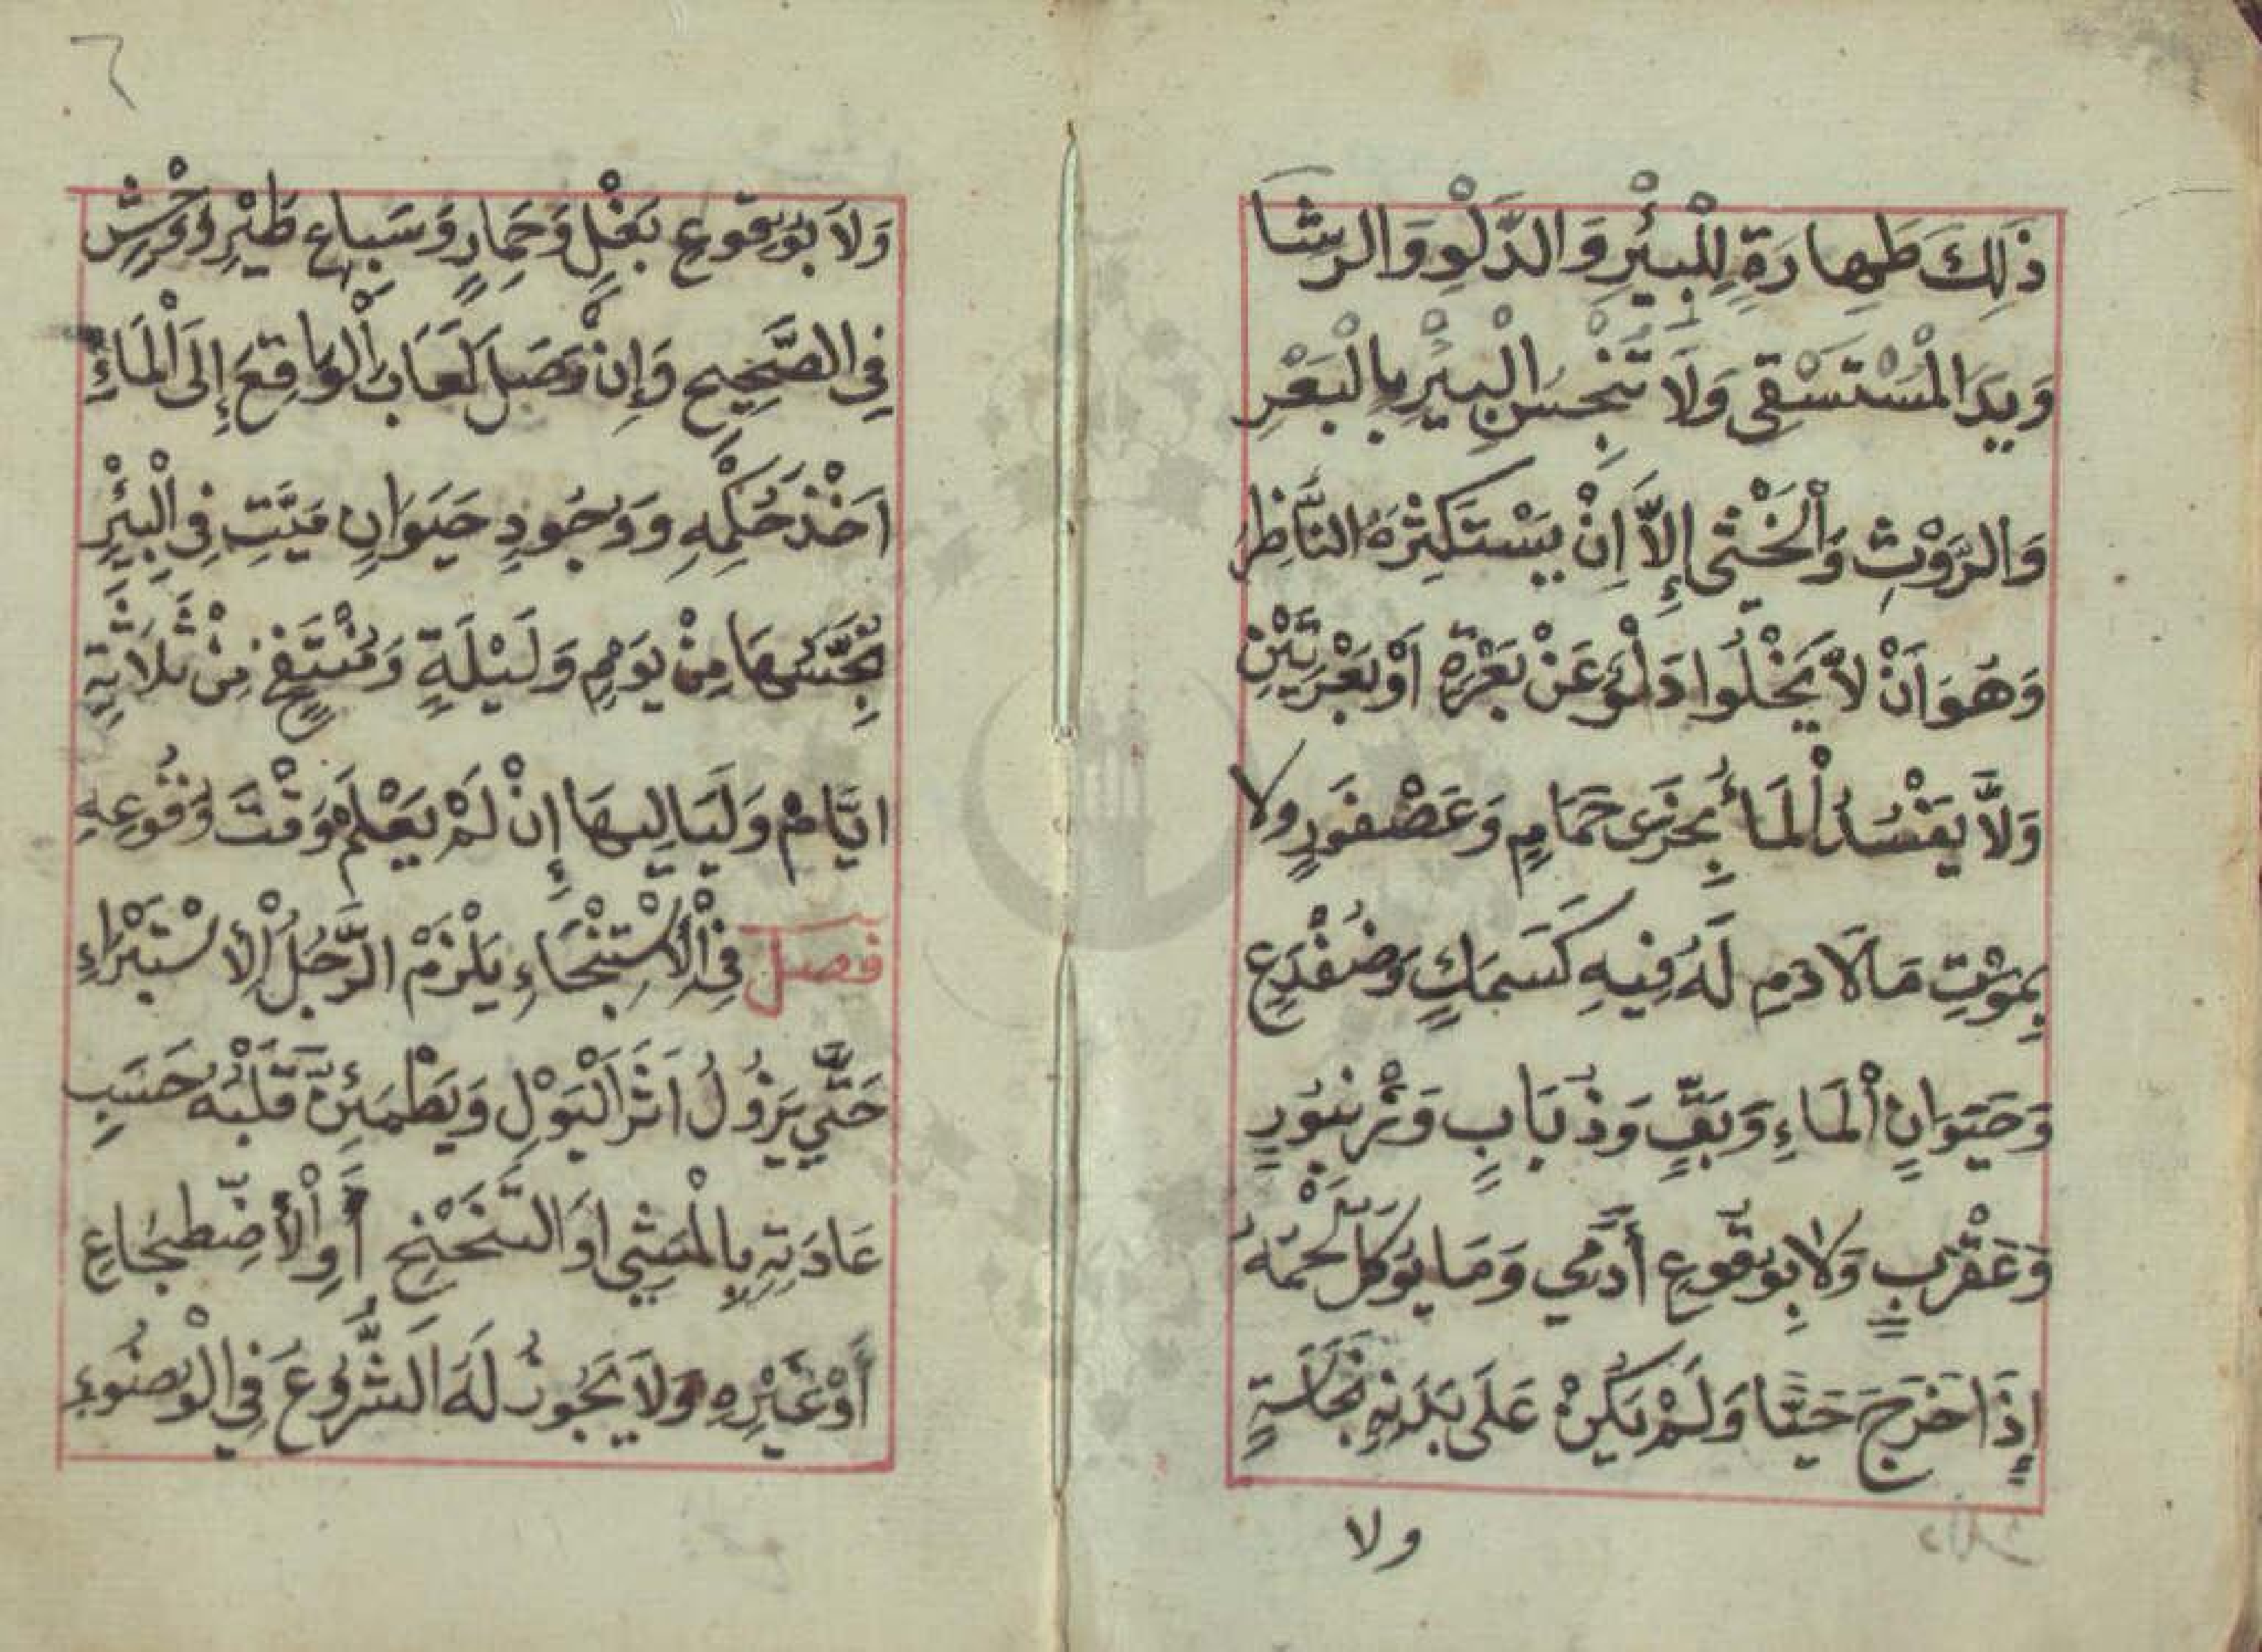 ذَلِكَ طَهَارَةً لِلْبِيْرِ وَالدَّلْوِ وَالرِشَا
وَيَدَ الْمُسْتَسْقِى وَلَا تَنْجِسُ الْبِيْرِ بِالْبَعْرِ
وَالرَّوْثِ وَالْخَثِى إِلاَّ اِنْ يَسْتَكْثِرَهُ النَّاظِرُ
وَهُوَ اَنْ لاَّ يَخْلُوا دَلْوٌ عَنْ بَعْرَةٍ اَوْ بَعْرَتَيْنِ
وَلاَّ يَفْسُدُ الْمَاءُ بِخَرَىِ حَمَامٍ وَعَصْفَورٍ ولا
بِمَوْتِ مَا لَا دَمِ لَهُ فِيهِ كَسَمَكٍ وَضُفْدَعٍ
وَحَيَوَانِ الْمَاءِ وَبَقٍّ وَذُبَابٍ وَزُنْبُورٍ
وَعَقْرَبٍ وَلَا بِوُقُوعِ أَدَمِي وَمَا يُوكَلُ لَحْمُهُ
اِذَا خَرَجَ حَيًّا وَلَمْ يَكُنْ عَلَى بَدَنِهِ نَجَاسَةٍ
ولا
٦
وَلاَ بِوُقُوعِ بَغْلٍ وَحِمَارٍ وَسِبَاعِ طَيْرٍ وَوَحْشٍ
فِى الصَّحِيحِ وَإِنْ وَصَلَ لُعَابُ الْوَاقِعِ إِلَى الْمَاءِ
اَخَذَ حُكْمِهِ وَوَجُودِ حَيَوَانٍ مَيَّتِ فِى الْبِئْرِ
يُنَجِّسُهَا مِنْ يَوْمٍ وَلَيْلَةٍ وَمُنْتَفِخٍ مِنْ ثَلَاثَةِ
اَيَّامٍ وَلَيَالِيهَا إِنْ لَمْ يَعْلَمْ وَقْتَ وُقُوعِهِ
فصل فِى الْأسْتِنْجَاءِ يَلْزَمُ الرَّجُلُ الْأِسْتَبْرَاءِ
حَتَّي يَزُولُ اَثَرَ الْبَوْلِ وَيَطْمَئِنَّ قَلْبُهُ حَسَبِ
عَادَتِهِ بِالْمَشِي اوَ التَّنَحْنِحِ أَوِ الْأضِّطِجَاعِ
أَوْ غَيْرِهِ وَلَا يَجُوزُ لَهَ الشُّرُوعَ فِي الْوُضُوءِ